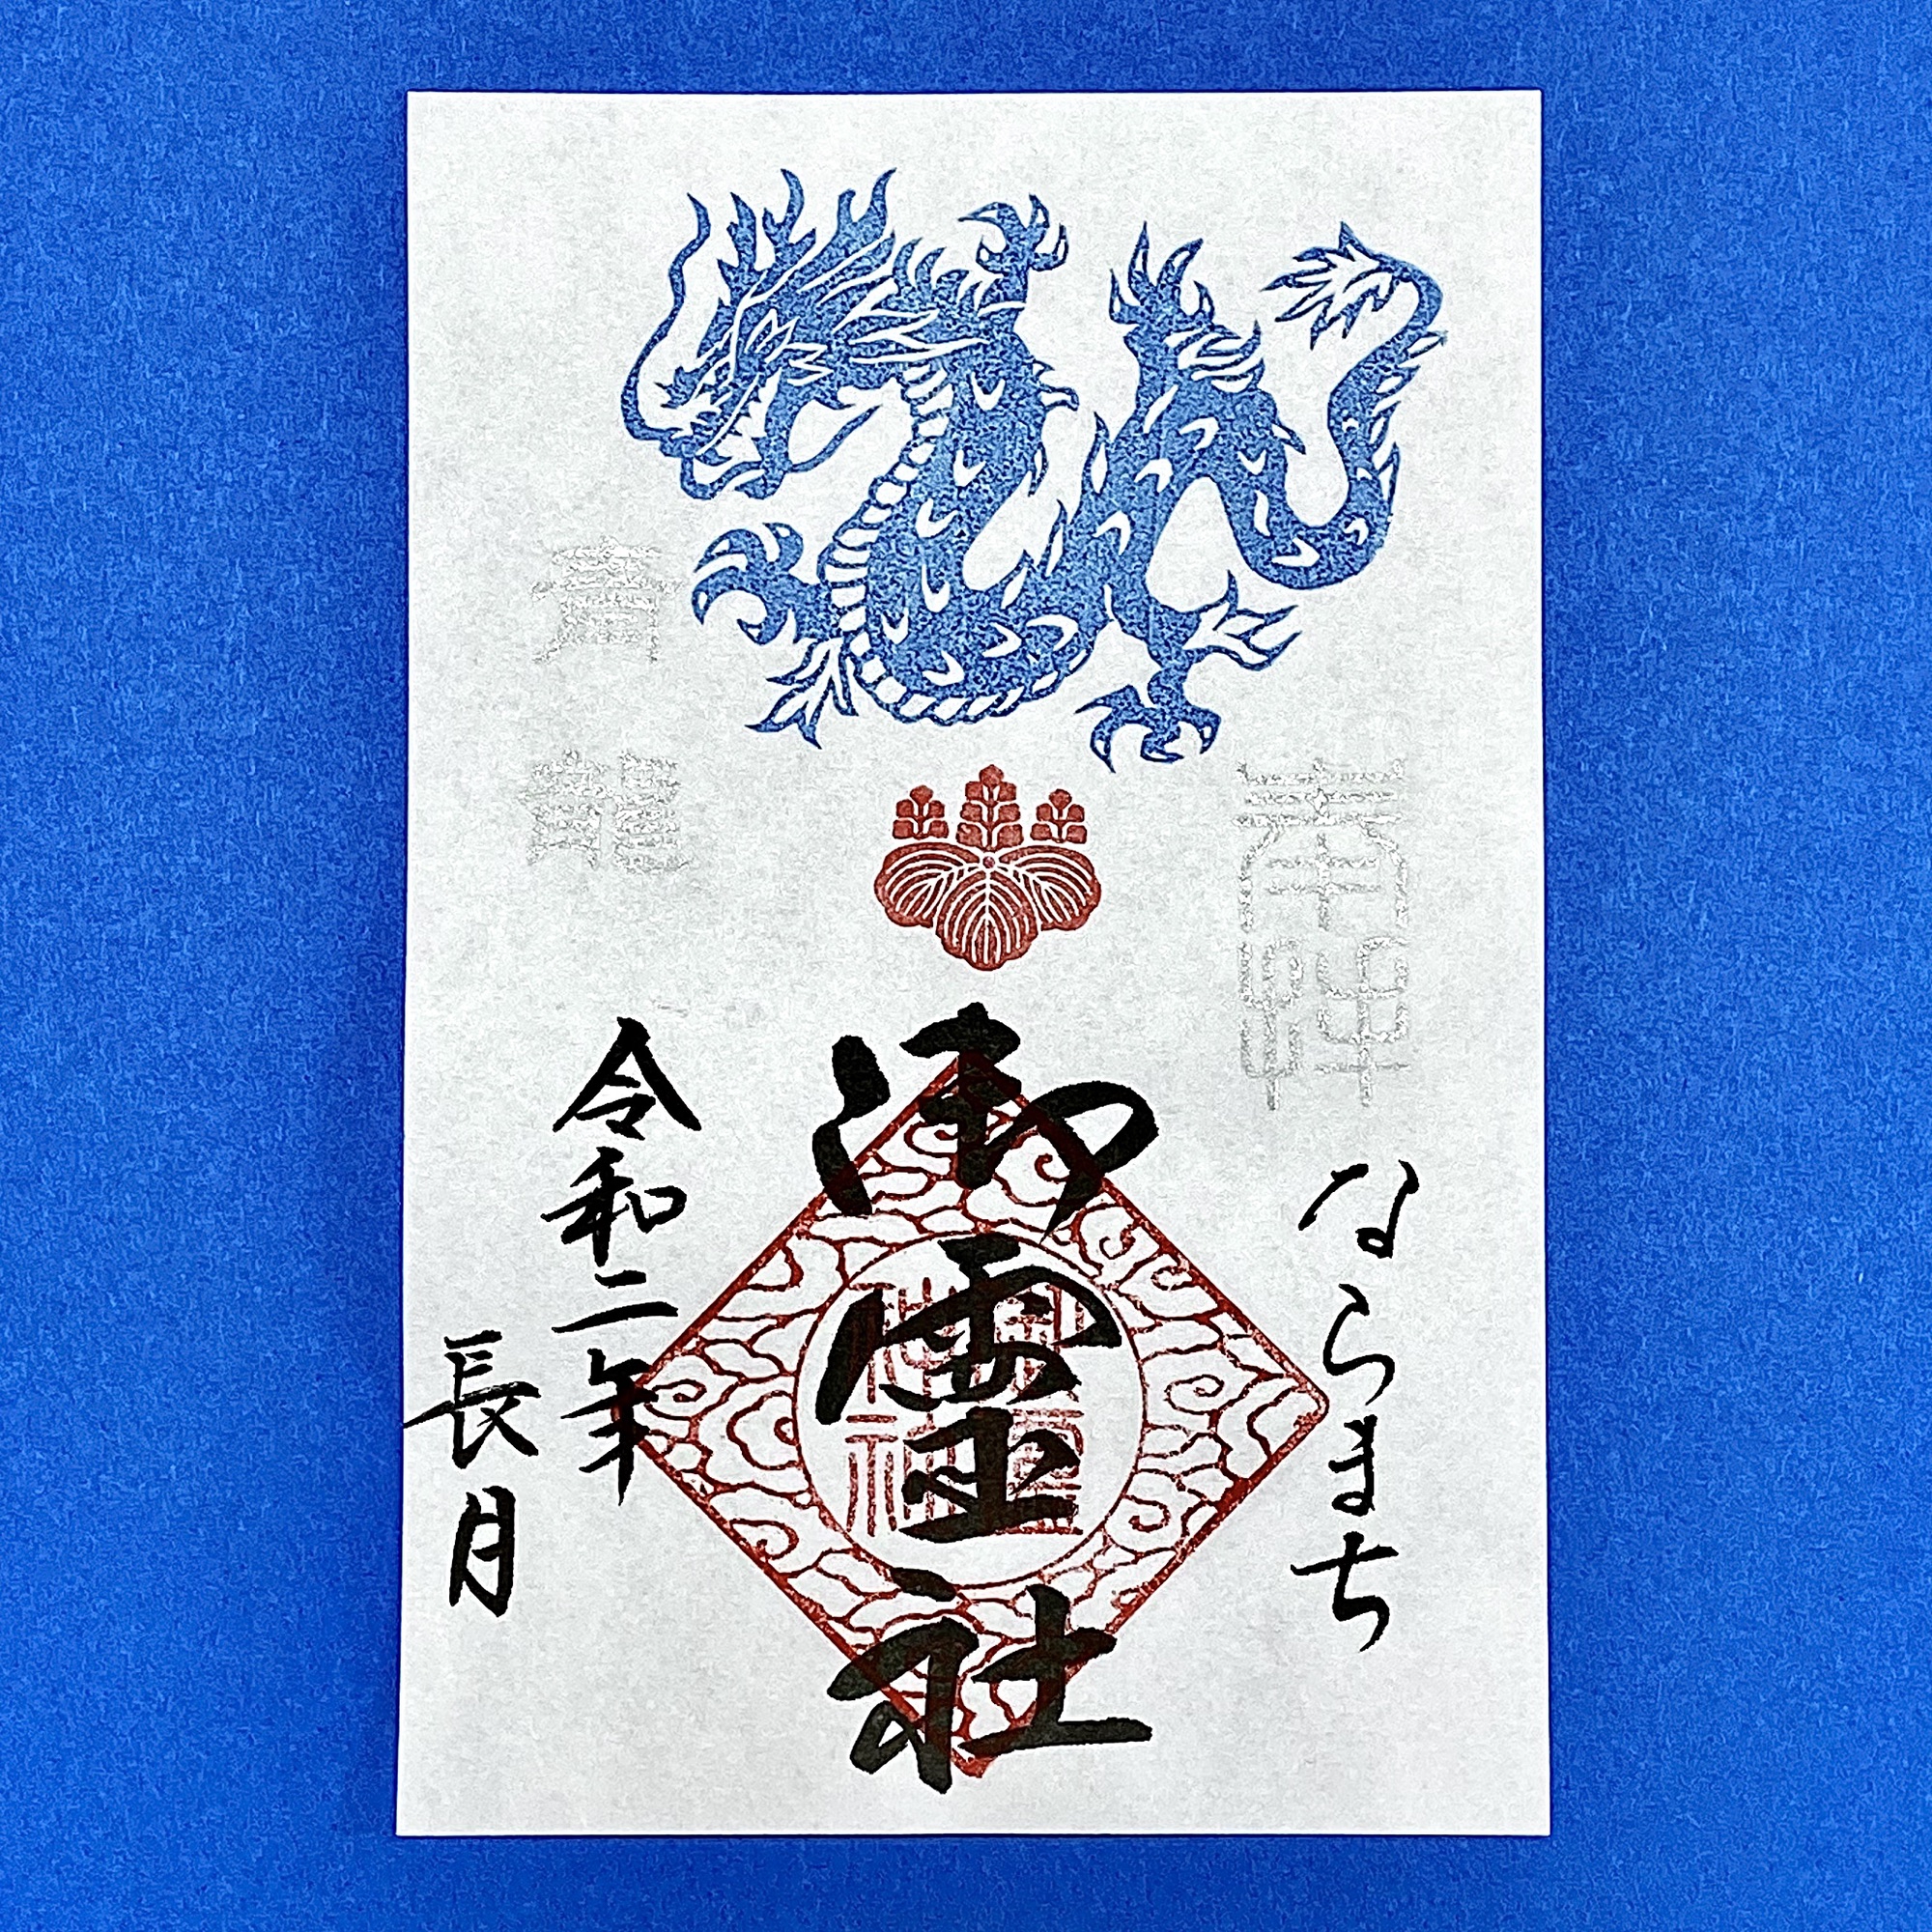 奉拝
ならまち
御霊社
青龍
令和二年
長月